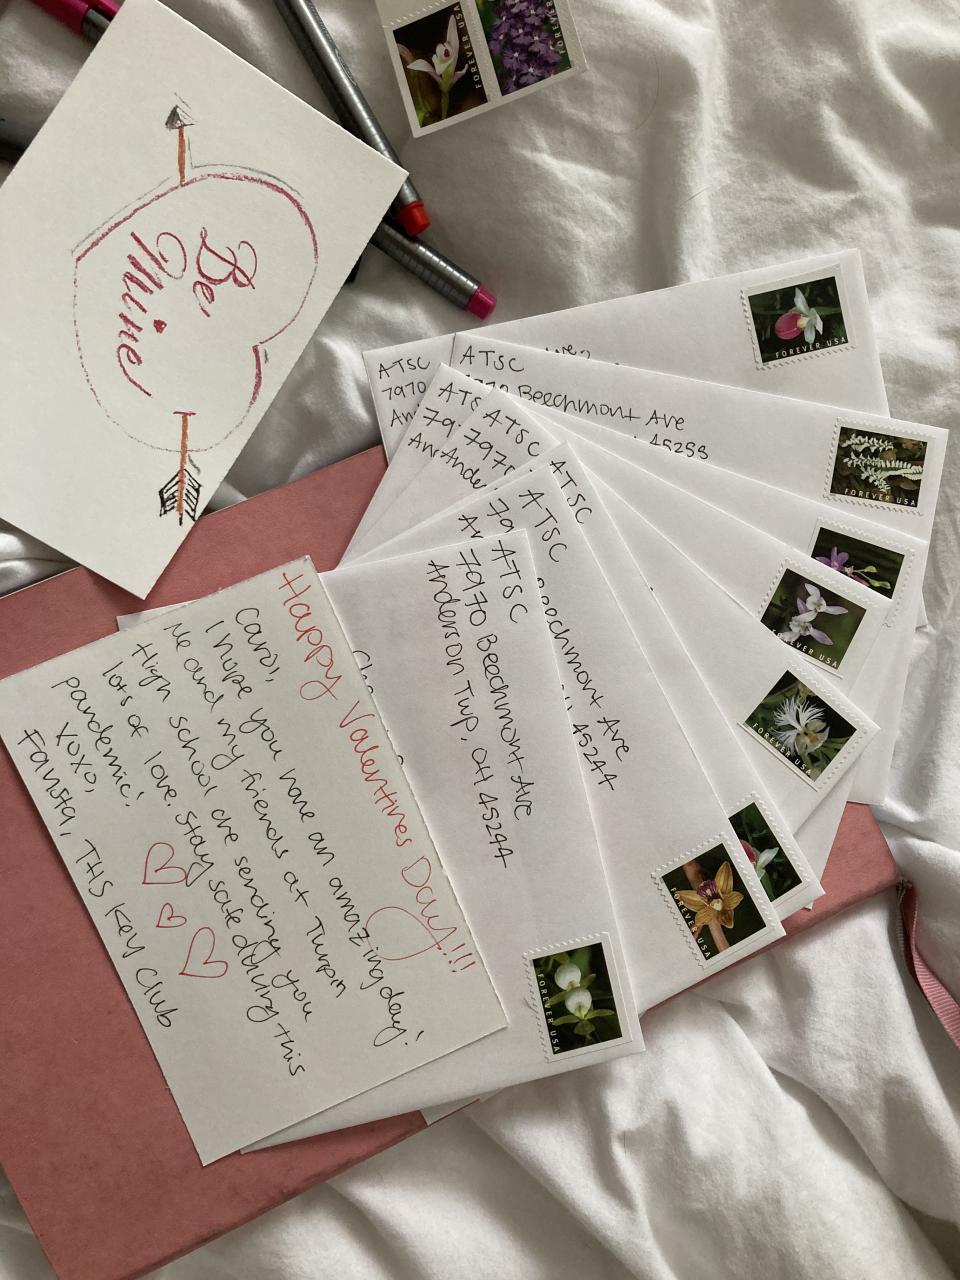 Be
Mine
FOREVER USA
FOREVER USA
ATSC
7970
ATSC
7970 Beechmont Ave
45255
FOREVER USA
FOREVER USA
ATSC
7970
Ander
FOREVER USA
FOREVER USA
ATSC
ATSC
Beechmont Ave
45244
FOREVER USA
ATSC
7970 Beechmont Ave
Anderson Twp, OH 45244
FOREVER USA
Happy Valentines Day!!!
Carol,
I hope you have an amazing day!
Me and my friends at Turpin
High school are sending you
lots of love. Stay safe during this
pandemic!
XOXO,
Fansta, THS Key Club